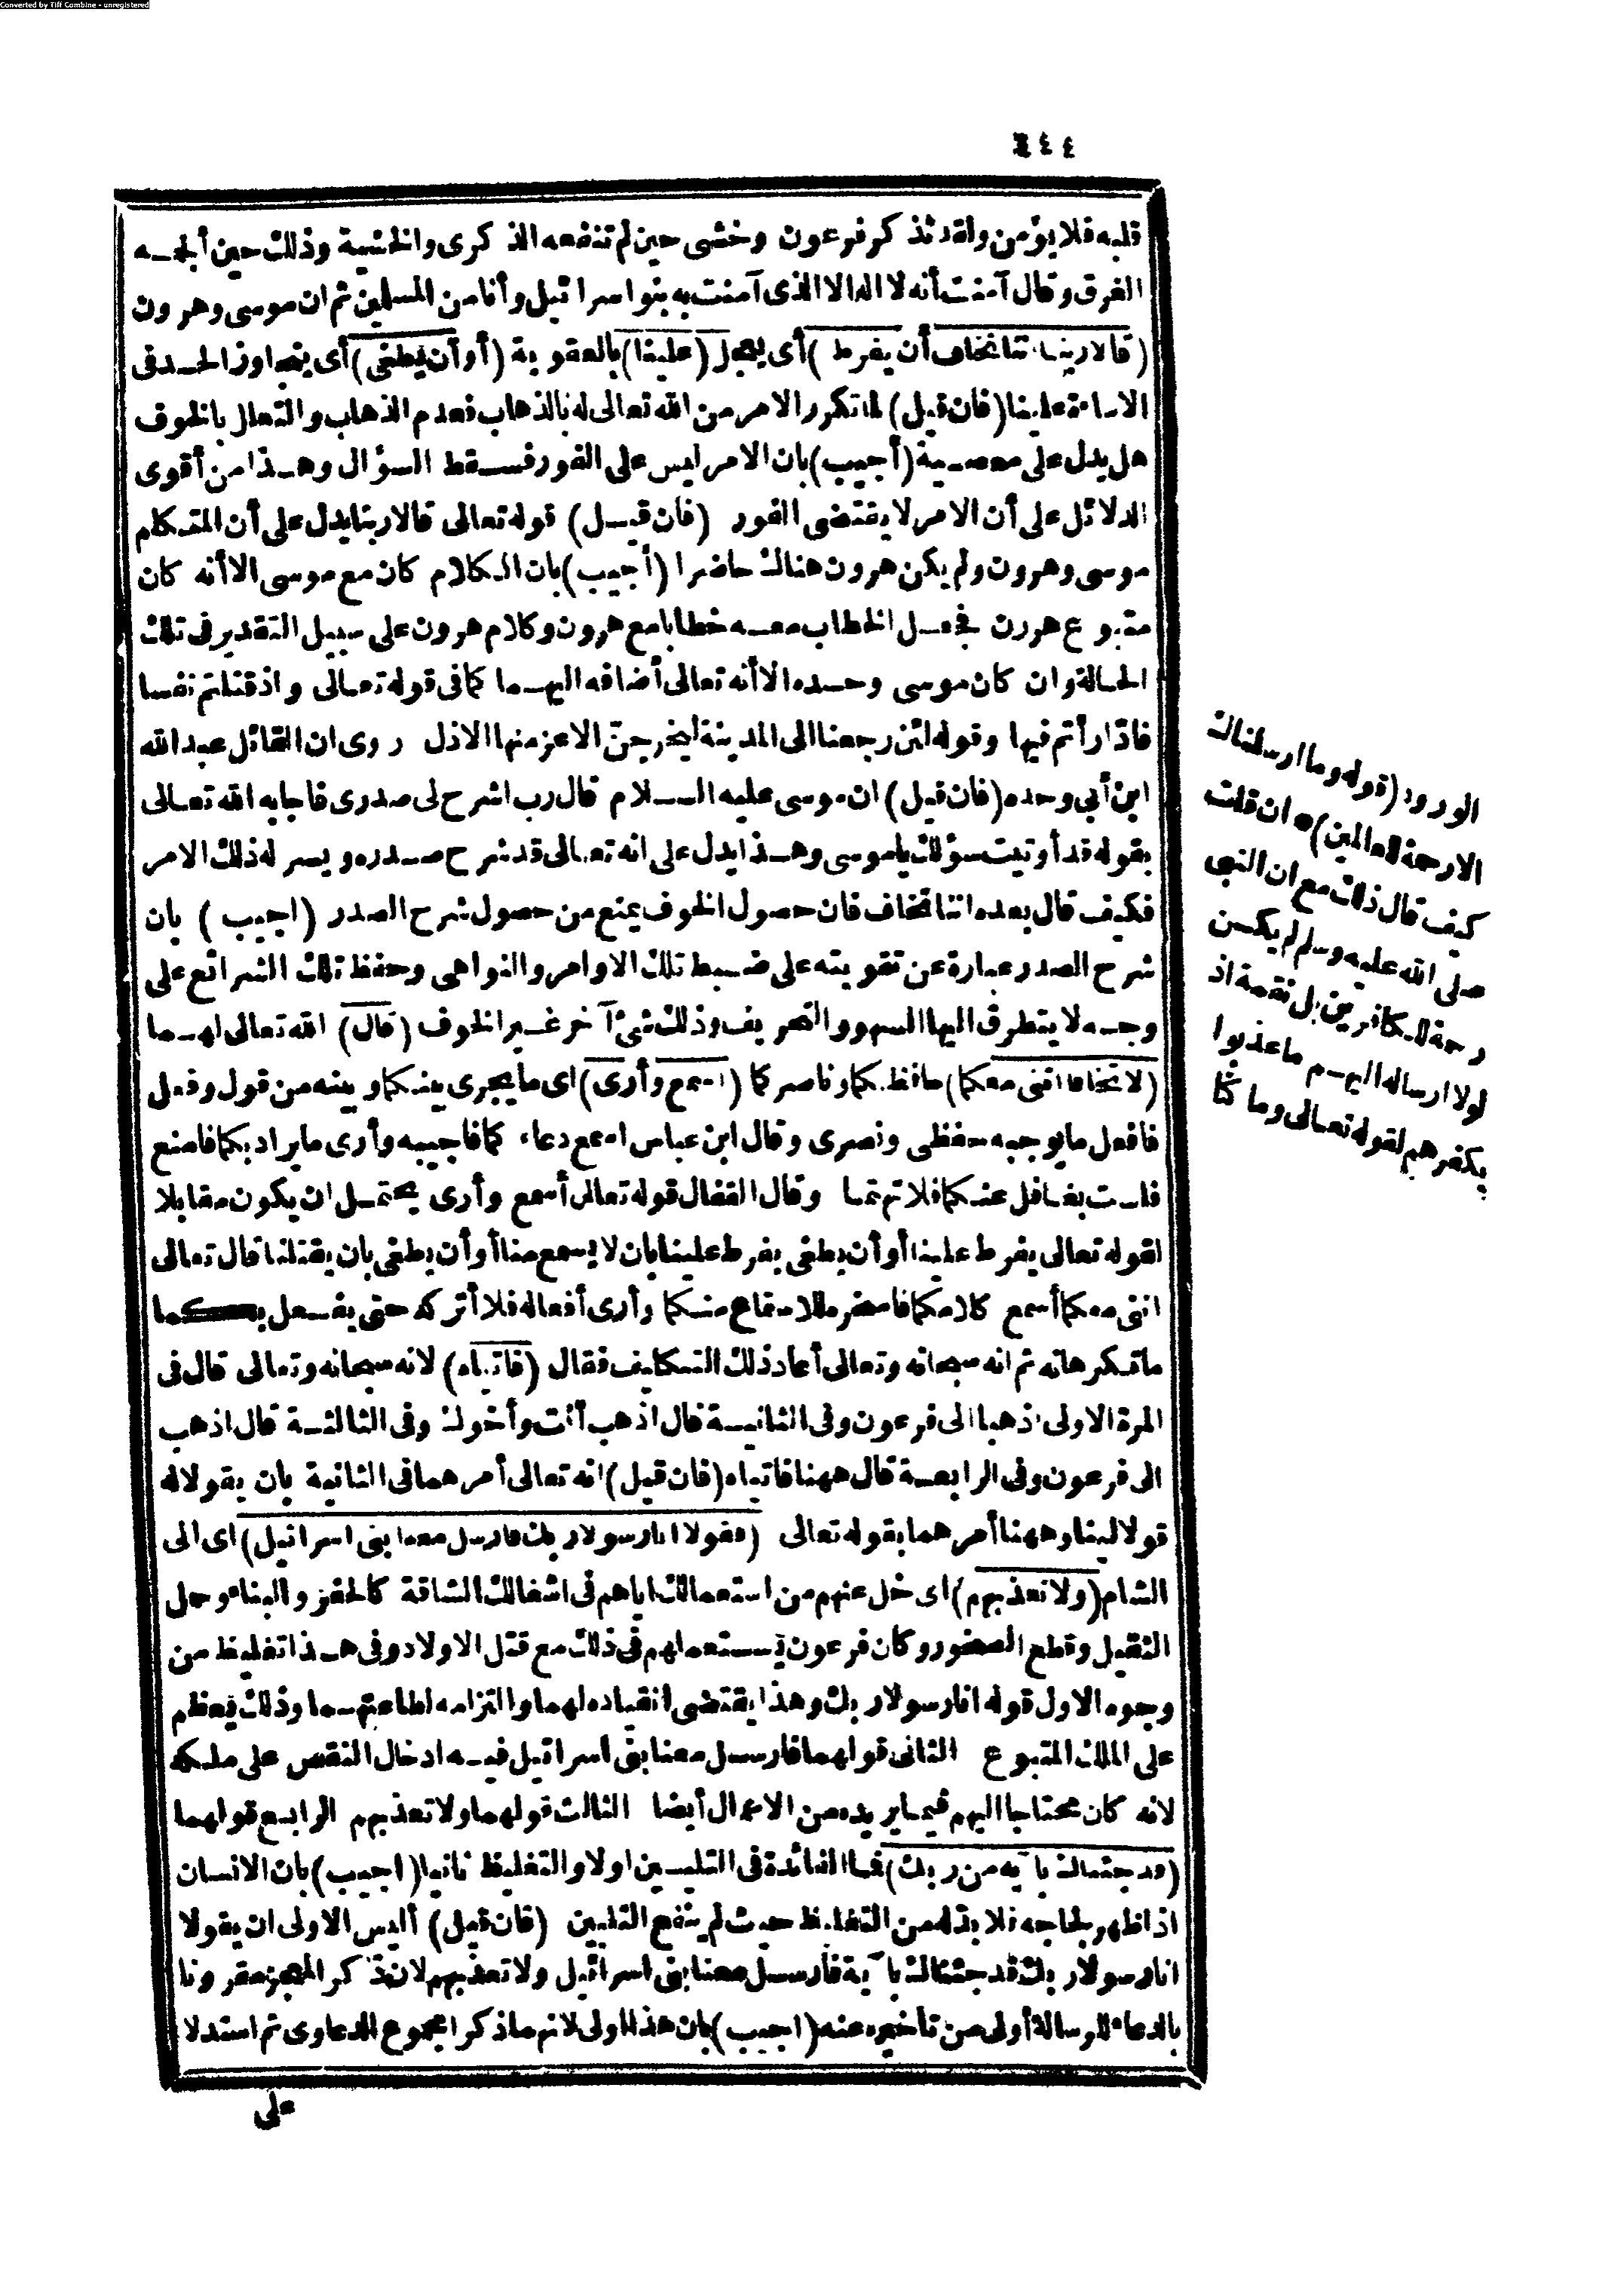 Converted by Tiff Combine - unregistered
٤٤٤
قلبه فلا يؤمن ولقد تذكر فرعون وخشى حين لم تنفعه الذكرى والخشية وذلك حين ألجمه
الغرق وقال آمنت أنه لا اله الا الذى آمنت به بنو اسرائيل وأنا من المسلمين ثم ان موسى وهرون
(قالا ربنا اننا نخاف أن يفرط) أى يعجل (علينا) بالعقوبة (أو أن يطغى) أى يتجاوز الحد فى
الاساءة علينا (فان قيل) لما تكرر الامر من الله تعالى له بالذهاب فعدم الذهاب والتعلل بالخوف
هل يدل على معصية (أجيب) بان الامر ليس على الفور فسقط السؤال وهذا من أقوى
الدلائل على أن الامر لا يقتضى الفور (فان قيل) قوله تعالى قالا ربنا يدل على أن المتكلم
موسى وهرون ولم يكن هرون هناك حاضرا (أجيب) بان الكلام كان مع موسى الا أنه كان
متبوع هرون فجعل الخطاب معه خطابا مع هرون وكلام هرون على سبيل التقدير فى تلك
الحالة وان كان موسى وحده الا أنه تعالى أضافه اليهما كما فى قوله تعالى واذ قتلتم نفسا
فادّارأتم فيها وقوله لئن رجعنا الى المدينة ليخرجنّ الاعز منها الاذل روى ان القائل عبد الله
ابن أبى وحده (فان قيل) ان موسى عليه السلام قال رب اشرح لى صدرى فاجابه الله تعالى
بقوله قد أوتيت سؤلك يا موسى وهذا يدل على انه تعالى قد شرح صدره ويسر له ذلك الامر
فكيف قال بعده اننا نخاف فان حصول الخوف يمنع من حصول شرح الصدر (اجيب) بان
شرح الصدر عبارة عن تقويته على ضبط تلك الاوامر والنواهى وحفظ تلك الشرائع على
وجه لا يتطرق اليها السهو والتحريف وذلك شئ آخر غير الخوف (قال) الله تعالى لهما
(لا تخافا اننى معكما) حافظكما وناصركما (اسمع وأرى) اى ما يجرى بينكما وبينه من قول وفعل
فافعل ما يوجبه حفظى ونصرى وقال ابن عباس اسمع دعاءكما فاجيبه وأرى ما يراد بكما فامنع
فلست بغافل عنكما فلا تهتما وقال القفال قوله تعالى أسمع وأرى يحتمل ان يكون مقابلا
لقوله تعالى يفرط علينا أو أن يطغى يفرط علينا بان لا يسمع منا أو أن يطغى بان يقتلنا قال تعالى
اننى معكما أسمع كلامكما فاسخره للاستماع منكما وأرى أفعاله فلا أتركه حتى يفعل بكما
ما تكرهانه ثم انه سبحانه وتعالى أعاد ذلك التكليف فقال (فاتياه) لانه سبحانه وتعالى قال فى
المرة الاولى اذهبا الى فرعون وفى الثانية قال اذهب أنت وأخوك وفى الثالثة قال اذهب
الى فرعون وفى الرابعة قال ههنا فاتياه (فان قيل) انه تعالى أمرهما فى الثانية بان يقولا له
قولا لينا وههنا أمرهما بقوله تعالى (فقولا انا رسولا ربك فارسل معنا بنى اسرائيل) اى الى
الشام (ولا تعذبهم) اى خل عنهم من استعمالك اياهم فى اشغالك الشاقة كالحفر والبناء وحمل
الثقيل وقطع الصخور وكان فرعون يستعملهم فى ذلك مع قتل الاولاد وفى هذا تغليظ من
وجوه الاول قوله انا رسولا ربك وهذا يقتضى انقياده لهما والتزامه لطاعتهما وذلك يعظم
على الملك المتبوع الثانى قولهما فارسل معنا بنى اسرائيل فيه ادخال النقص على ملكه
لانه كان محتاجا اليهم فيما يريده من الاعمال أيضا الثالث قولهما ولا تعذبهم الرابع قولهما
(قد جئناك بآية من ربك) فما الفائدة فى التليين اولا والتغليظ ثانيا (اجيب) بان الانسان
اذا ظهر لجاجه فلا بد له من التغليظ حيث لم ينفع التليين (فان قيل) أليس الاولى ان يقولا
انا رسولا ربك قد جئناك بآية فأرسل معنا بنى اسرائيل ولا تعذبهم لان ذكر المعجز مقرونا
بادعاء الرسالة أولى من تأخيره عنه (اجيب) بان هذا اولى لانهما ذكرا مجموع الدعاوى ثم استدلا
على
الورود (قوله وما ارسلناك
الا رحمة للعالمين) * ان قلت
كيف قال ذلك مع ان النبى
صلى الله عليه وسلم لم يكن
رحمة للكافرين بل نقمة اذ
لولا ارساله اليهم ما عذبوا
بكفرهم لقوله تعالى وما كنّا